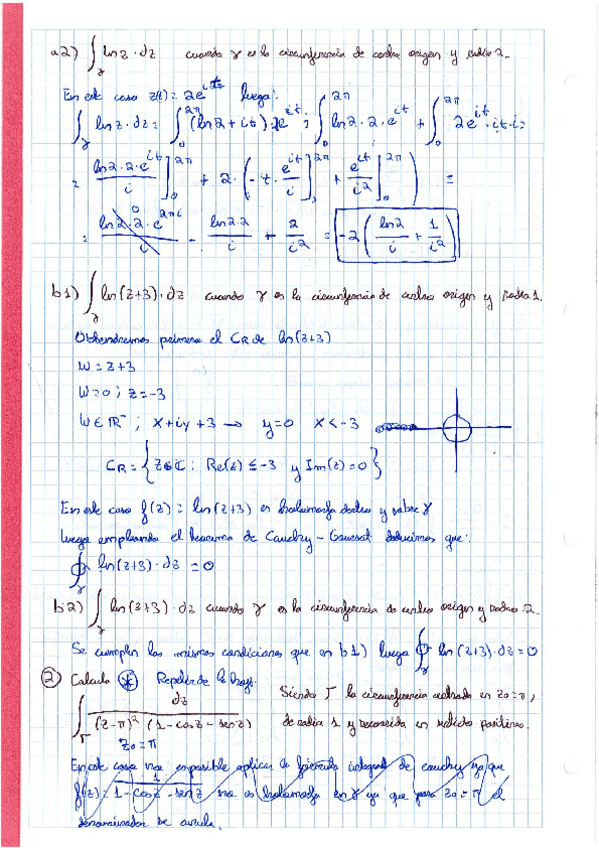 a2) ∫_γ ln z · dz cuando γ es la circunferencia de centro origen y radio 2.
En este caso z(t) = 2e^{it} luego:
∫_γ ln z · dz = ∫_0^{2π} (ln 2 + it) · 2e^{it} = ∫_0^{2π} ln 2 · 2 · e^{it} + ∫_0^{2π} 2e^{it} · it · i =
= ln 2 · 2 · e^{it} / i ]_0^{2π} + 2 · ( - t · e^{it} / i ]_0^{2π} + e^{it} / i² ]_0^{2π} ) =
= ln 2 · 2 · e^{2πi} / i - ln 2 · 2 / i + 2 / i² = -2 ( ln 2 / i + 1 / i² )
b1) ∫_γ ln(z+3) · dz cuando γ es la circunferencia de centro origen y radio 1.
Obtendremos primero el CR de ln(z+3)
W = z+3
W=0 ; z=-3
W ∈ ℝ⁻ ; x+iy+3 → y=0 x<-3
CR = { z∈ℂ : Re(z) ≤ -3 y Im(z) = 0 }
En este caso f(z) = ln(z+3) es holomorfa dentro y sobre γ
luego empleando el teorema de Cauchy - Goursat deducimos que:
∮_γ ln(z+3) · dz = 0
b2) ∫_γ ln(z+3) · dz cuando γ es la circunferencia de centro origen y radio 2
Se cumplen las mismas condiciones que en b1) luego ∮_γ ln(z+3) · dz = 0
② Calcula * Repetir
∫_Γ dz / (z-π)² (1 - cos z - sen z) Siendo Γ la circunferencia centrada en z₀=π,
de radio 1 y recorrida en sentido positivo.
z₀ = π
En este caso no es posible aplicar la fórmula integral de cauchy ya que
f(z) = 1 / 1 - cos z - sen z no es holomorfa en γ ya que para z₀ = π el
denominador se anula.